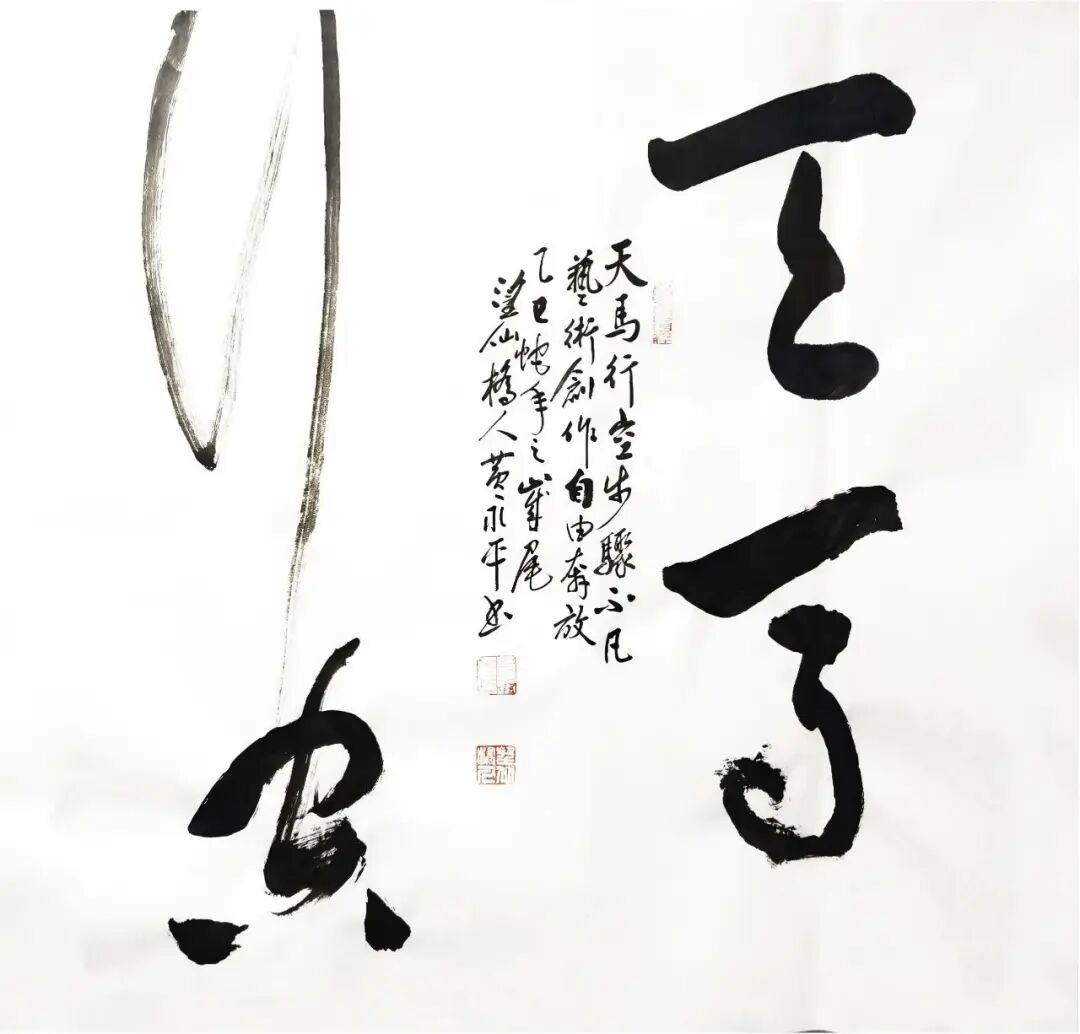 天馬
天馬行空步驟不凡
藝術創作自由奔放
乙巳蛇年之歲尾
望仙橋人黃永平书
行空